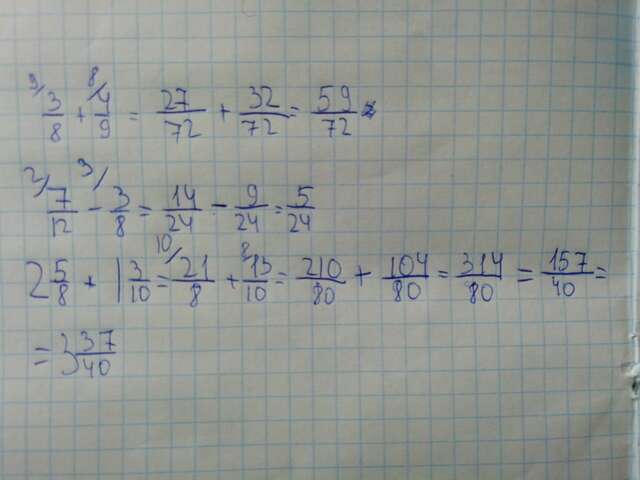 9/ 3/8 + 8/ 4/9 = 27/72 + 32/72 = 59/72
2/ 7/12 - 3/ 3/8 = 14/24 - 9/24 = 5/24
2 5/8 + 1 3/10 = 10/ 21/8 + 8/ 13/10 = 210/80 + 104/80 = 314/80 = 157/40 =
= 3 37/40